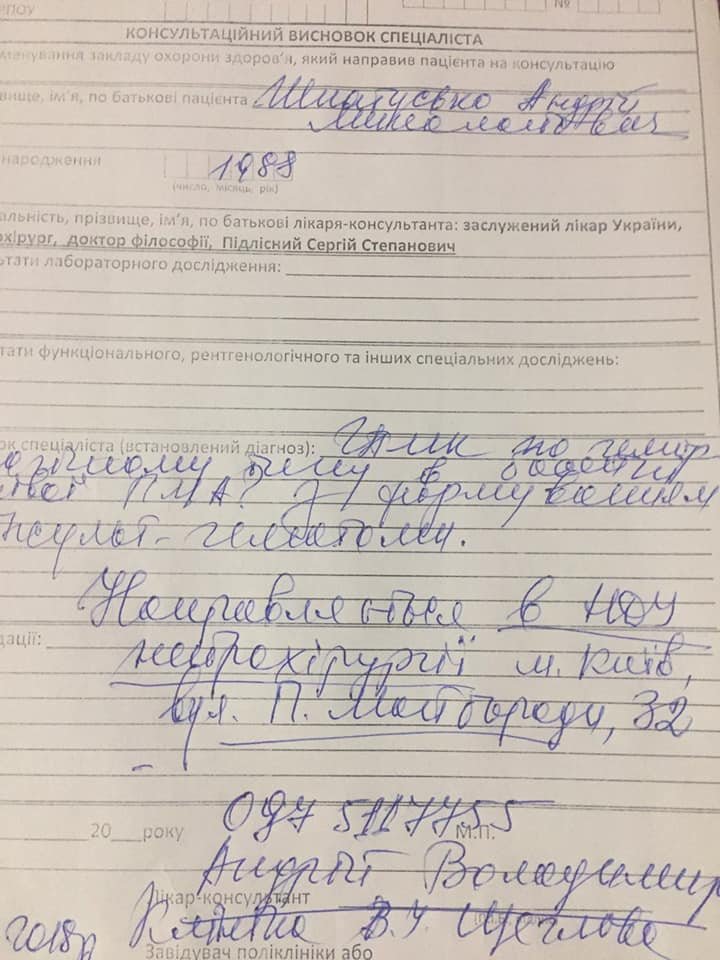 ЄДРПОУ №
КОНСУЛЬТАЦІЙНИЙ ВИСНОВОК СПЕЦІАЛІСТА
менування закладу охорони здоров’я, який направив пацієнта на консультацію
вище, ім’я, по батькові пацієнта Андрій
народження 1988
(число, місяць, рік)
альність, прізвище, ім’я, по батькові лікаря-консультанта: заслужений лікар України,
охірург, доктор філософії, Підлісний Сергій Степанович
ьтати лабораторного дослідження:
тати функціонального, рентгенологічного та інших спеціальних досліджень:
ок спеціаліста (встановлений діагноз): по гемор
типу в
ПМА? З формуванням
нсульт-гематоми.
Направляється в
дації:
нейрохірургії м. Київ,
вул. П. Майбороди, 32
20 року 097 5117755
М.П.
Андрій Володимир
Лікар-консультант
Клініка Щеглова
2018р
Завідувач поліклініки або